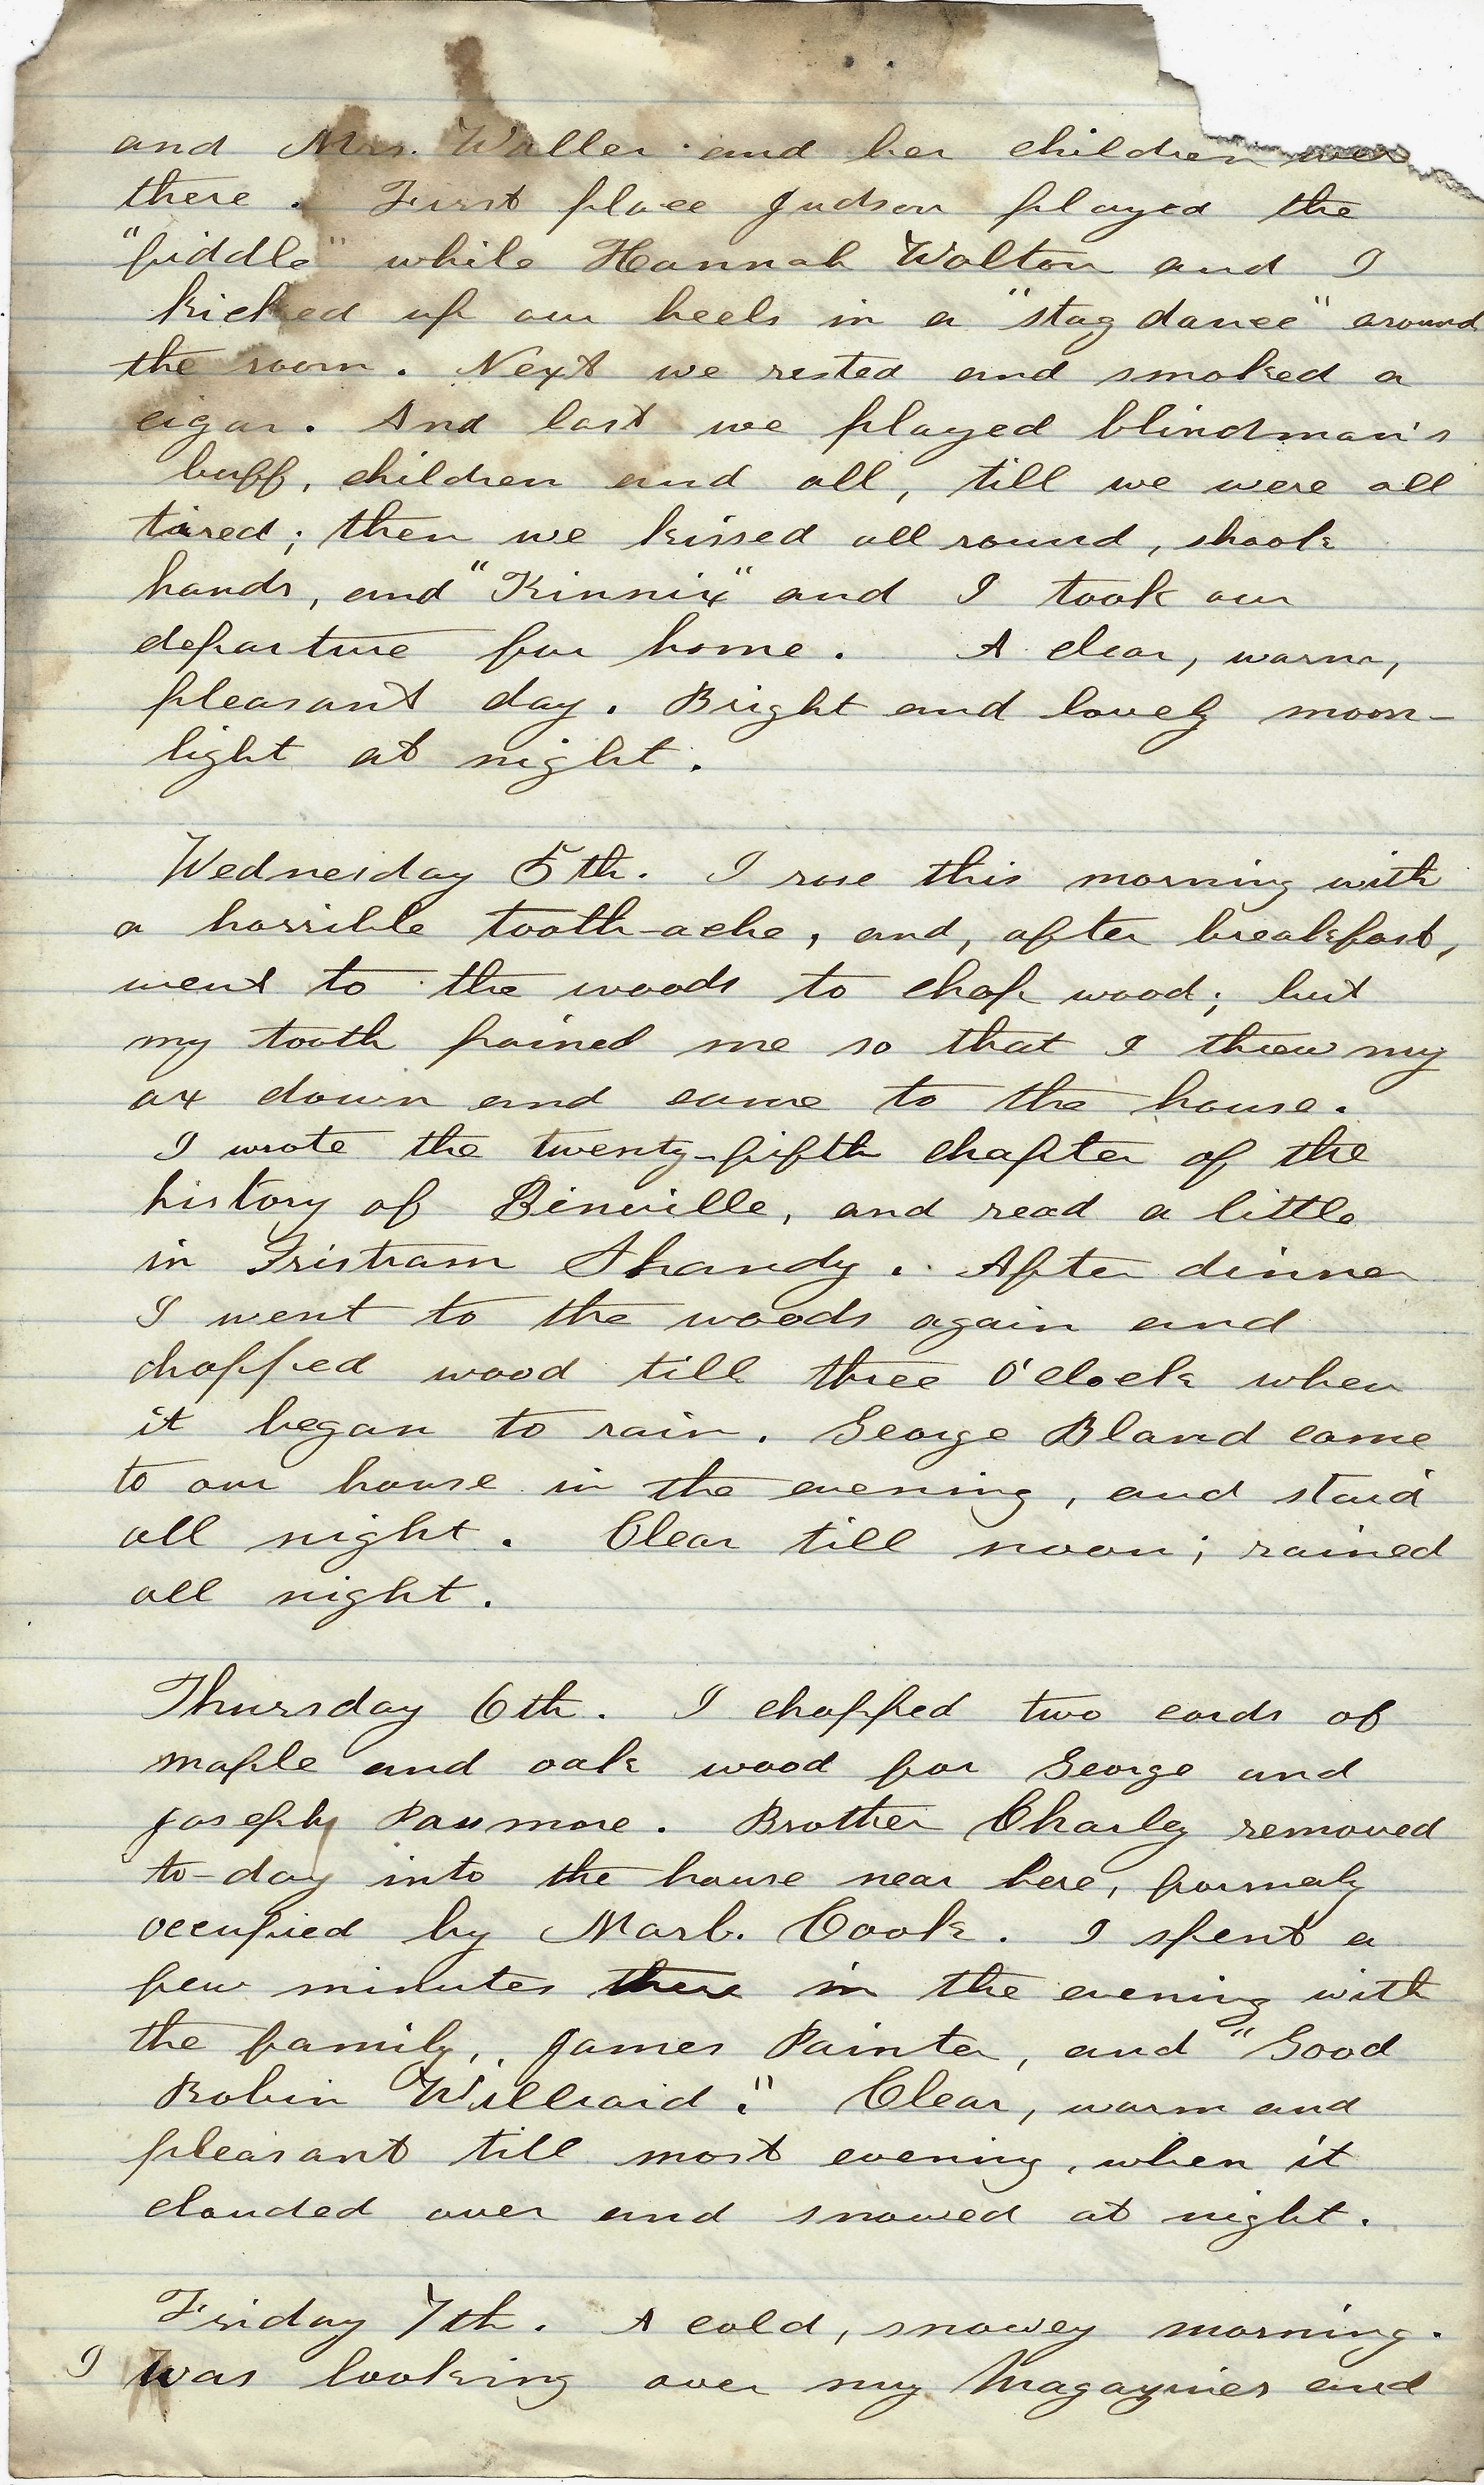 and Mrs. Waller and her children were
there. First place Judson played the
"fiddle" while Hannah Walton and I
kicked up our heels in a "stag dance" around
the room. Next we rested and smoked a
cigar. And last we played blindman's
buff, children and all, till we were all
tired; then we kissed all round, shook
hands, and "Kinnix" and I took our
departure for home. A clear, warm,
pleasant day. Bright and lovely moon-
light at night.
Wednesday 5th. I rose this morning with
a horrible tooth-ache, and, after breakfast,
went to the woods to chop wood; but
my tooth pained me so that I threw my
ax down and came to the house.
I wrote the twenty-fifth chapter of the
history of Binville, and read a little
in Tristram Shandy. After dinner
I went to the woods again and
chopped wood till three o'clock when
it began to rain. George Bland came
to our house in the evening, and staid
all night. Clear till noon; rained
all night.
Thursday 6th. I chopped two cords of
maple and oak wood for George and
Joseph Passmore. Brother Charley removed
to-day into the house near here, formaly
occupied by Marb. Cook. I spent a
few minutes there in the evening with
the family, James Painter, and "Good
Robin Williaid." Clear, warm and
pleasant till most evening, when it
clouded over and snowed at night.
Friday 7th. A cold, snowey morning.
I was looking over my Magazines and